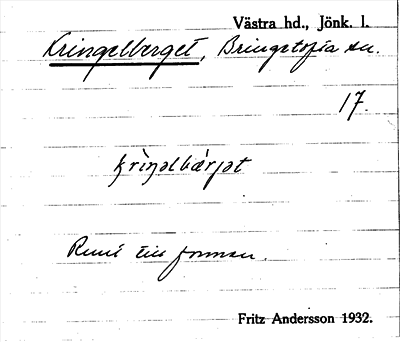 Västra hd., Jönk. l.
Kringelberget, Bringetofta sn.
17.
krìŋəlbæ̀rjət
Runt till formen.
Fritz Andersson 1932.